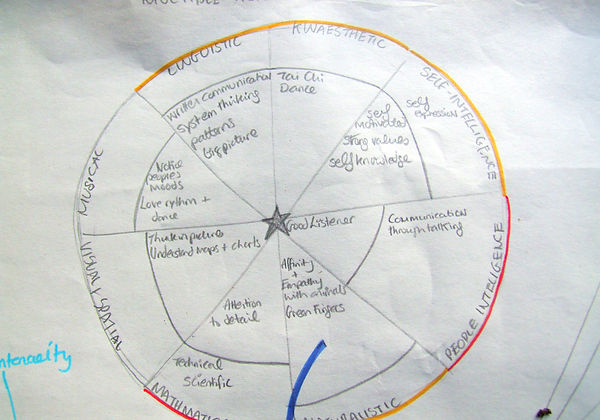 LINGUISTIC
KINAESTHETIC
SELF-INTELLIGENCE
written communication
system thinking
patterns
big picture
Tai Chi
Dance
self
motivated
strong values
self knowledge
self
expression
MUSICAL
Notice
peoples
moods
Love rythm +
dance
Good Listener
Communication
through talking
PEOPLE INTELLIGENCE
VISUAL/SPATIAL
Think in pictures
Understand maps + charts
Affinity
+
Empathy
with animals
Green Fingers
Attention
to detail
Technical
Scientific